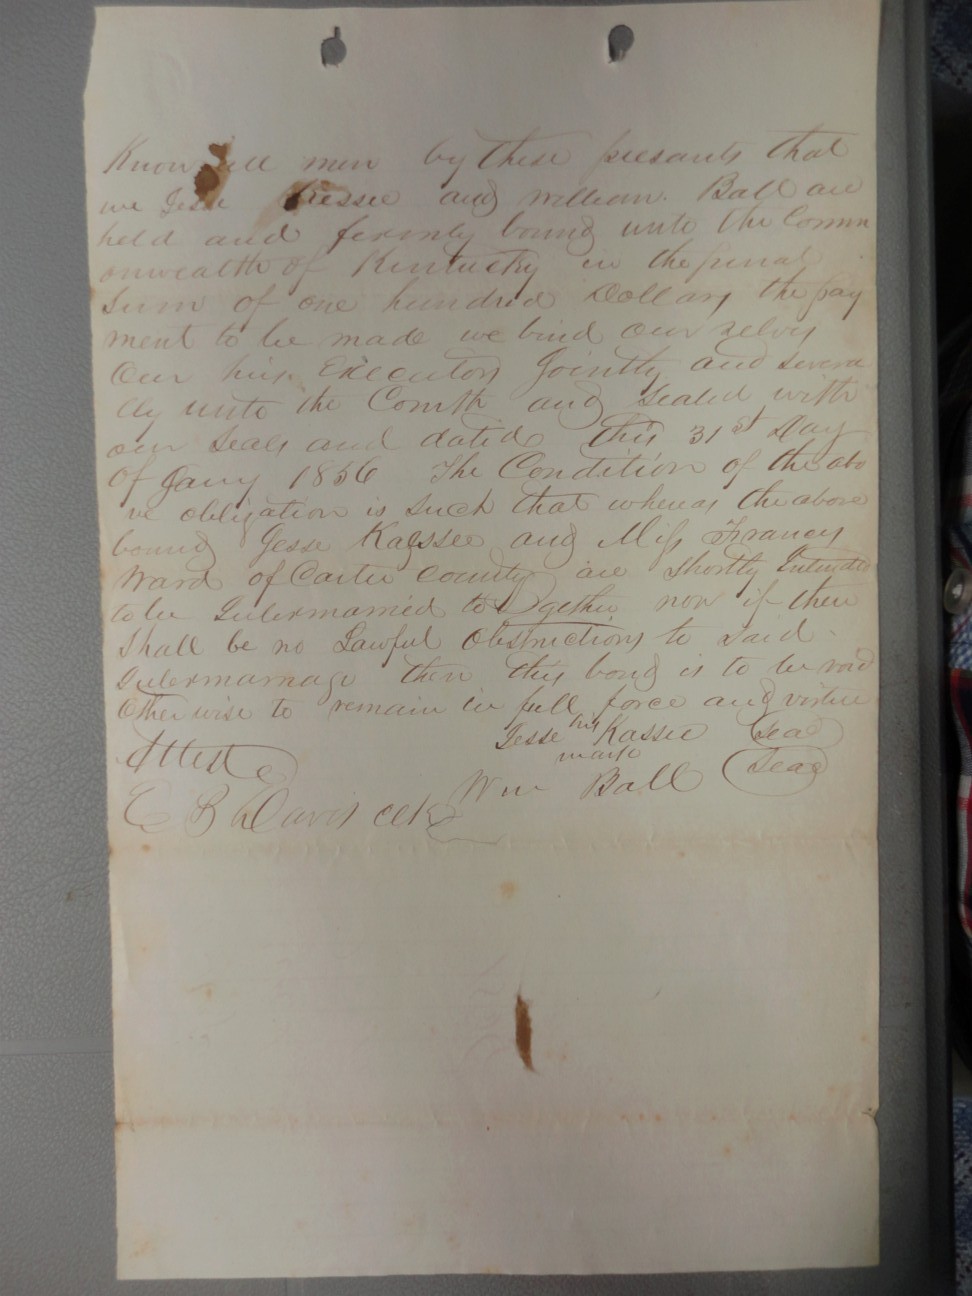 Know all men by these presants that
we Jesse Kessee and William Ball are
held and fermly bound unto the Comm
onwealth of Kentucky in the penal
Sum of one hundred Dollars the pay
ment to be made we bind our selvs
Our hirs Executors Jointly and severa
lly unto the Comth and Sealed with
our Seals and dated this 31st Day
Of Jany 1856 The Condition of the abo
ve obligation is Such that whereas the above
bound Jesse Kaessee and Miss Francis
Ward of Carter County are Shortly Intended
to be Intermarried to gether now if there
Shall be no Lawful Obstructions to said
Intermarriage then this bond is to be void
Other wise to remain in full force and virtue
Jesse his Kassee Seal
mark
Attest
Wm Ball Seal
E B Davis clk